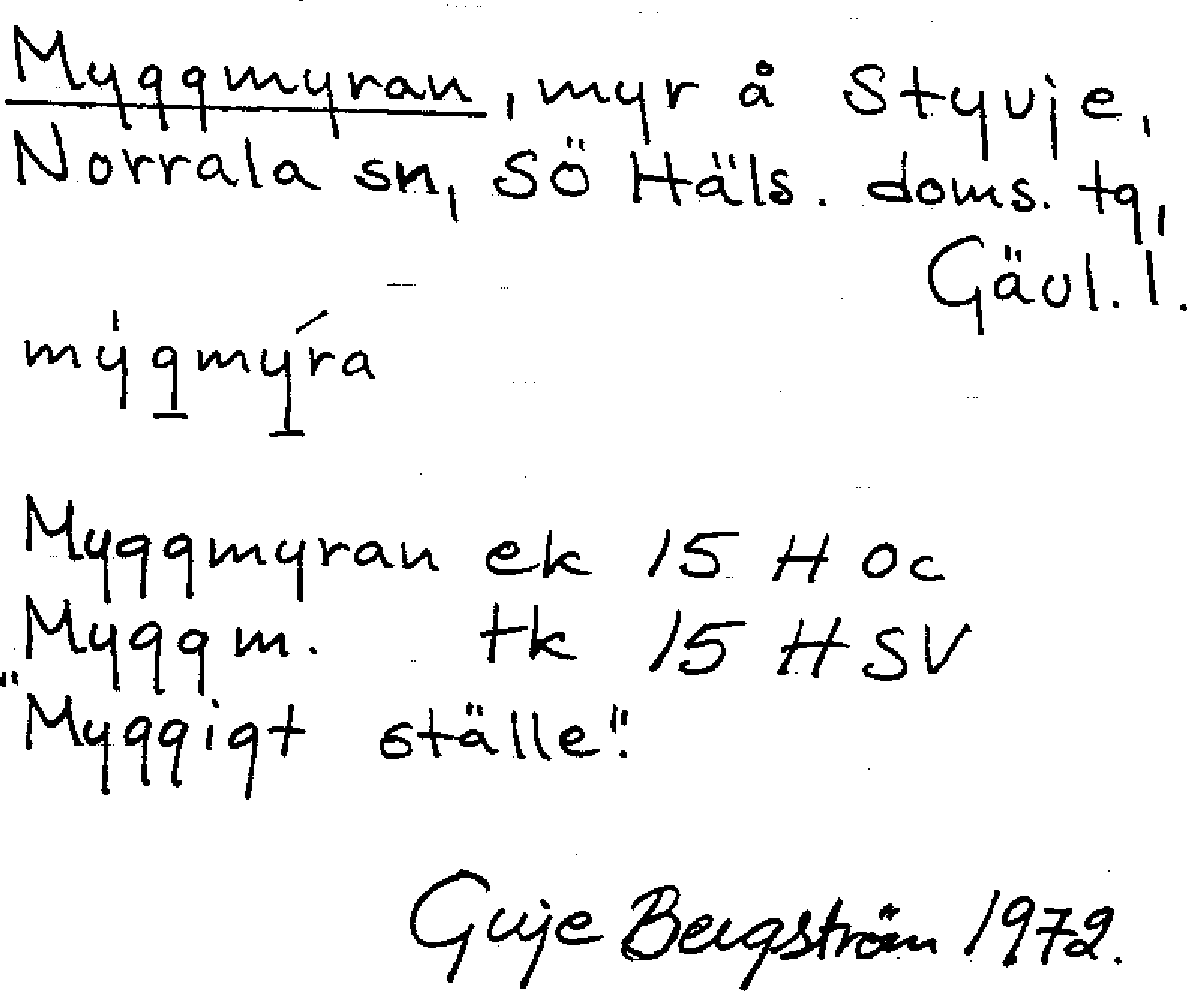 Myggmyran, myr å Styvje,
Norrala sn, Sö Häls. doms. tg,
Gävl. l.
mýgmýra
Myggmyran ek 15 H 0c
Myggm. tk 15 H SV
"Myggigt ställe".
Guje Bergström 1972.